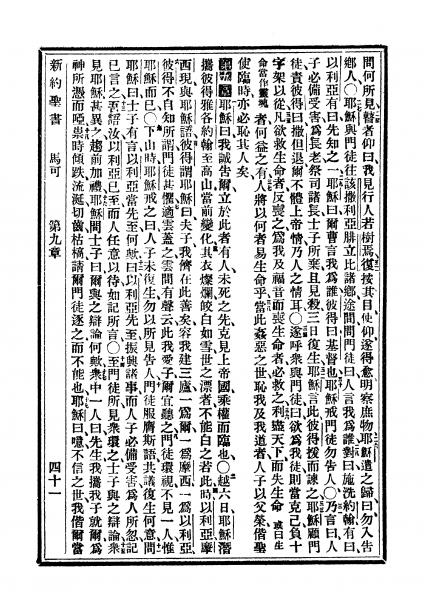 問何所見瞽者仰曰我見行人若樹焉復按其目使仰遂得愈明察庶物耶穌遣之歸曰勿入告
鄉人〇耶穌與門徒往該撒利亞腓立比諸鄉途間問門徒曰人言我爲誰對曰施洗約翰有曰
以利亞有曰先知之一耶穌曰爾曹言我爲誰彼得曰基督也耶穌戒門徒勿告人〇乃言曰人
子必備受害爲長老祭司諸長士子所棄且見殺三日復生耶穌言此彼得援而諫之耶穌顧門
徒責彼得曰撒但退爾不體上帝情乃人之情耳〇遂呼衆與門徒曰欲爲我徒則當克己負十
字架以從凡欲救生命者反喪之爲我及福音而喪生命者必救之利盡天下而失生命或曰生
命當作靈魂者何益之有人將以何者易生命乎當此姦惡之世恥我及我道者人子以父榮偕聖
使臨時亦必恥其人矣
第九章耶穌曰我誠告爾立於此者有人未死之先克見上帝國乘權而臨也〇越六日耶穌潛
攜彼得雅各約翰至高山當前變化其衣燦爛皎白如雪世之漂者不能白之若此時以利亞摩
西現與耶穌語彼得謂耶穌曰夫子我儕在此善矣容我建三廬一爲爾一爲摩西一爲以利亞
彼得不自知所謂門徒甚懼適雲蓋之雲間有聲云此我愛子爾宜聽之門徒環視不見一人惟
耶穌而已〇下山時耶穌戒之曰人子未復生勿以所見告人門徒服膺斯語共議復生何意問
耶穌曰士子有言以利亞當先至何歟曰以利亞先至振興諸事而人子必備受害爲人所忽記
已言之吾語汝以利亞已至而人任意以待如記所言〇至門徒所見衆環之士子與之辯論衆
見耶穌甚異之趨前加禮耶穌問士子曰爾與之辯論何歟衆中一人曰先生我攜我子就爾爲
神所憑而啞祟時傾跌流涎切齒枯槁請爾門徒逐之而不能也耶穌曰噫不信之世我偕爾當
新約聖書 馬可 第九章 四十一